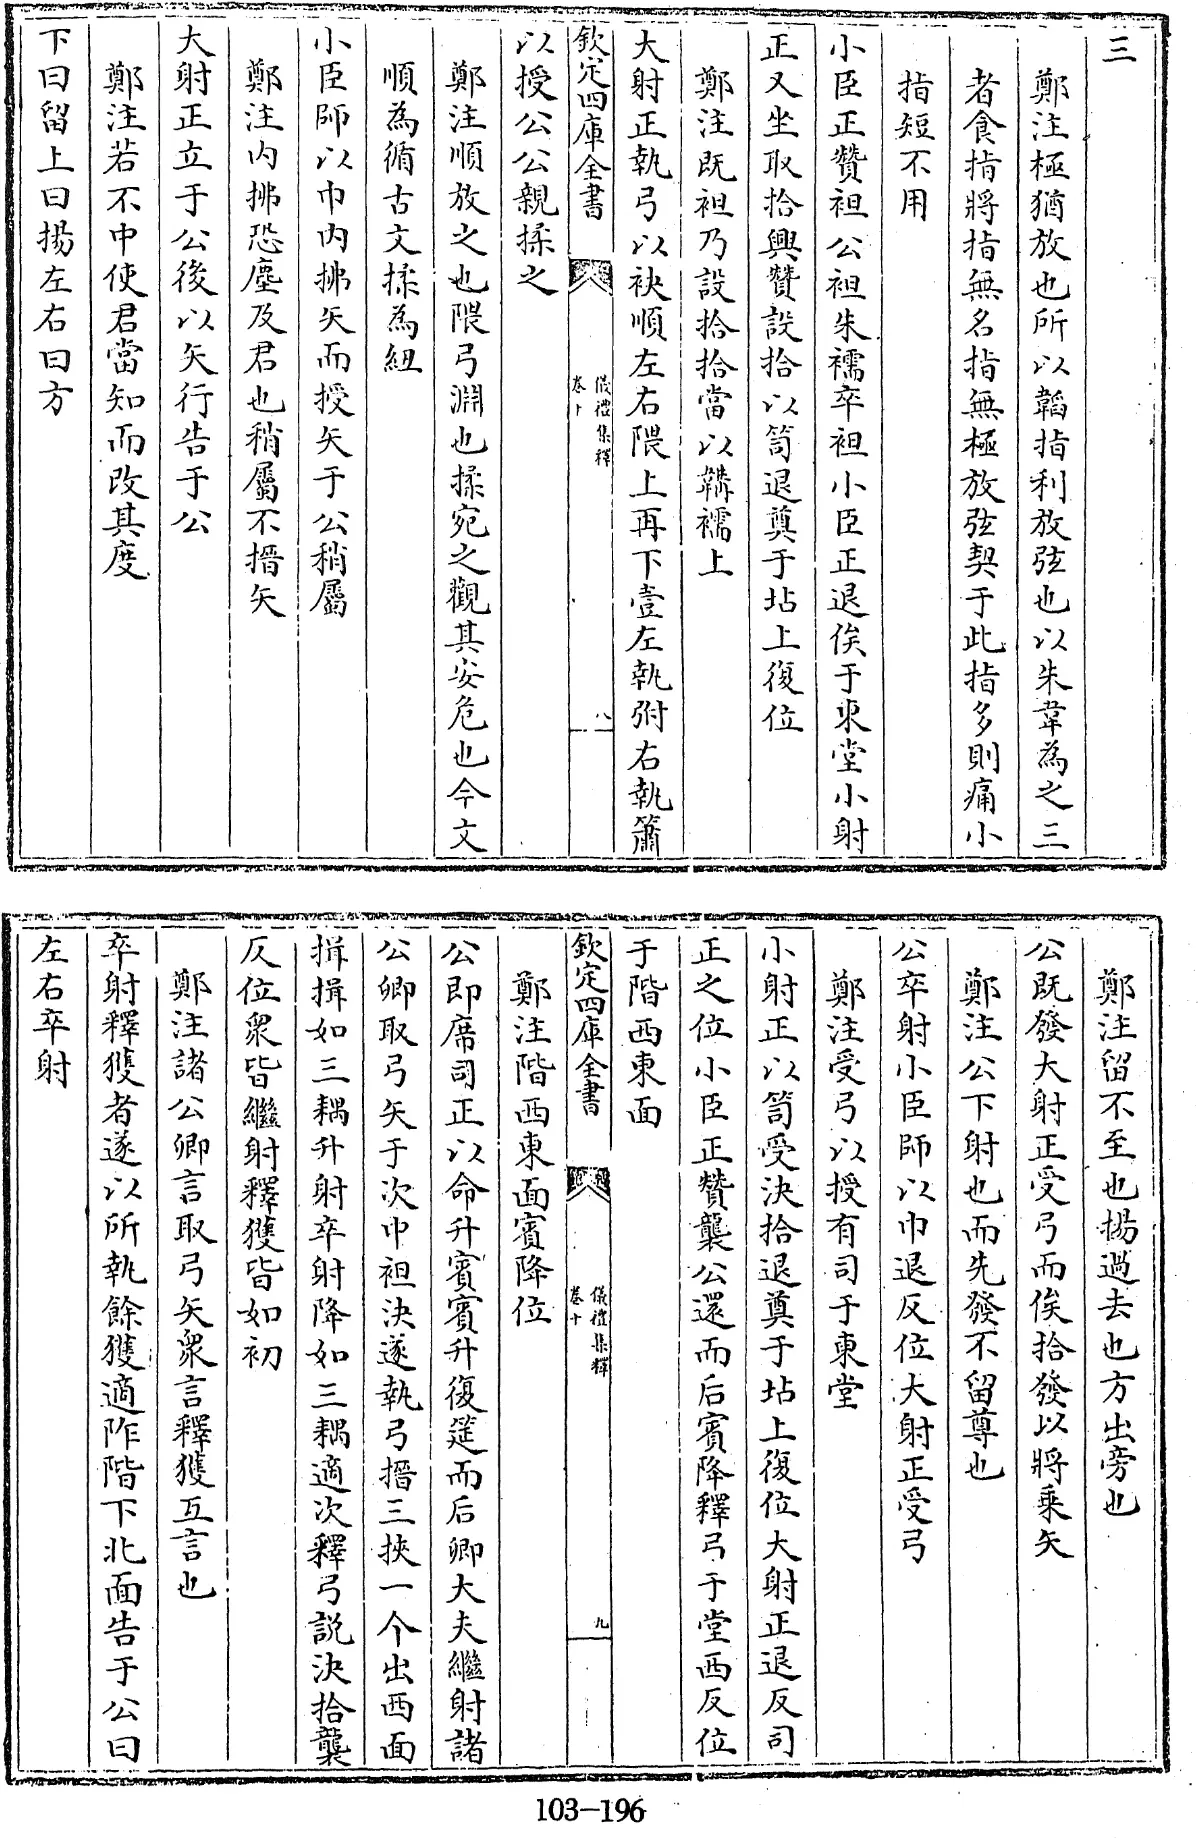 三
鄭注極猶放也所以韜指利放弦也以朱韋為之三
者食指將指無名指無極放弦契于此指多則痛小
指短不用
小臣正贊袒公袒朱襦卒袒小臣正退俟于東堂小射
正又坐取拾興贊設拾以笥退奠于坫上復位
鄭注既袒乃設拾拾當以韝襦上
大射正執弓以袂順左右隈上再下壹左執弣右執簫
欽定四庫全書
儀禮集釋
卷十
八
以授公公親揉之
鄭注順放之也隈弓淵也揉宛之觀其安危也今文
順為循古文揉為紐
小臣師以巾内拂矢而授矢于公稍屬
鄭注内拂恐塵及君也稍屬不搢矢
大射正立于公後以矢行告于公
鄭注若不中使君當知而改其度
下曰留上曰揚左右曰方
鄭注留不至也揚過去也方出旁也
公既發大射正受弓而俟拾發以將乘矢
鄭注公下射也而先發不留尊也
公卒射小臣師以巾退反位大射正受弓
鄭注受弓以授有司于東堂
小射正以笥受決拾退奠于坫上復位大射正退反司
正之位小臣正贊襲公還而后賓降釋弓于堂西反位
于階西東面
欽定四庫全書
儀禮集釋
卷十
九
鄭注階西東面賓降位
公即席司正以命升賓賓升復筵而后卿大夫繼射諸
公卿取弓矢于次中袒決遂執弓搢三挾一个出西面
揖揖如三耦升射卒射降如三耦適次釋弓説決拾襲
反位衆皆繼射釋獲皆如初
鄭注諸公卿言取弓矢衆言釋獲互言也
卒射釋獲者遂以所執餘獲適阼階下北面告于公曰
左右卒射
103-196